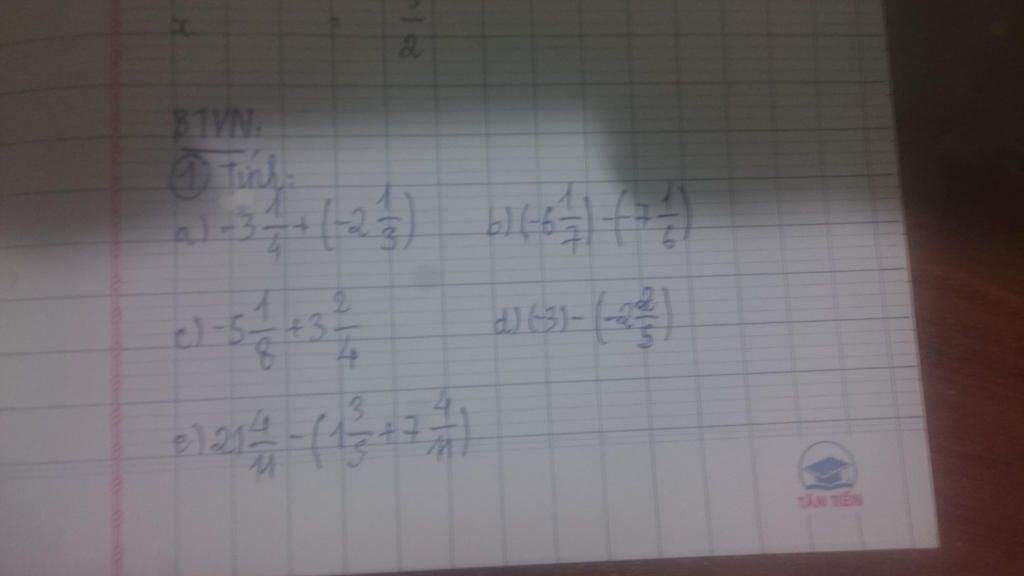 x = 5/2
BTVN:
① Tính:
a) -3 1/4 + (-2 1/3) b) (-6 1/7) - (7 1/6)
c) -5 1/8 + 3 2/4 d) (-3) - (-2 2/5)
e) 21 4/11 - (1 3/5 + 7 4/11)
TÂN TIẾN